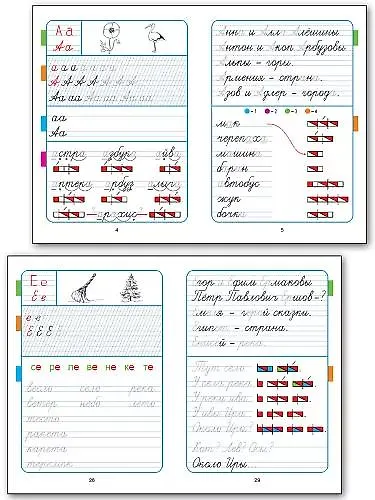 Аа
Аа
а а а а а а а а
А А А А А А А А
Аа Аа Аа Аа Аа Аа
аа
Аа
астра азбука айва
аптека арбуз
арахис
4
Анна и Алла Алёшины
Антон и Акоп Арбузовы.
Альпы - горы.
Армения - страна.
Азов и Адлер - города.
1 2 3 4
мак
черепаха
машина
баран
автобус
жук
бочка
5
Ее
Ее
е е
Е Е Е Е Е
се ре ле ве не ке те
весло село река
ветер небо лето
тесто
ракета
карета
теремок
28
Егор и Ефим Ермаковы.
Пётр Павлович Ершов - ?
Емеля - герой сказки.
Египет - страна.
Енисей - река.
Тут село.
У села река.
У реки ива.
У ивы Ира.
Около Иры
Кот? Лев? Осы?
Около Иры...
29